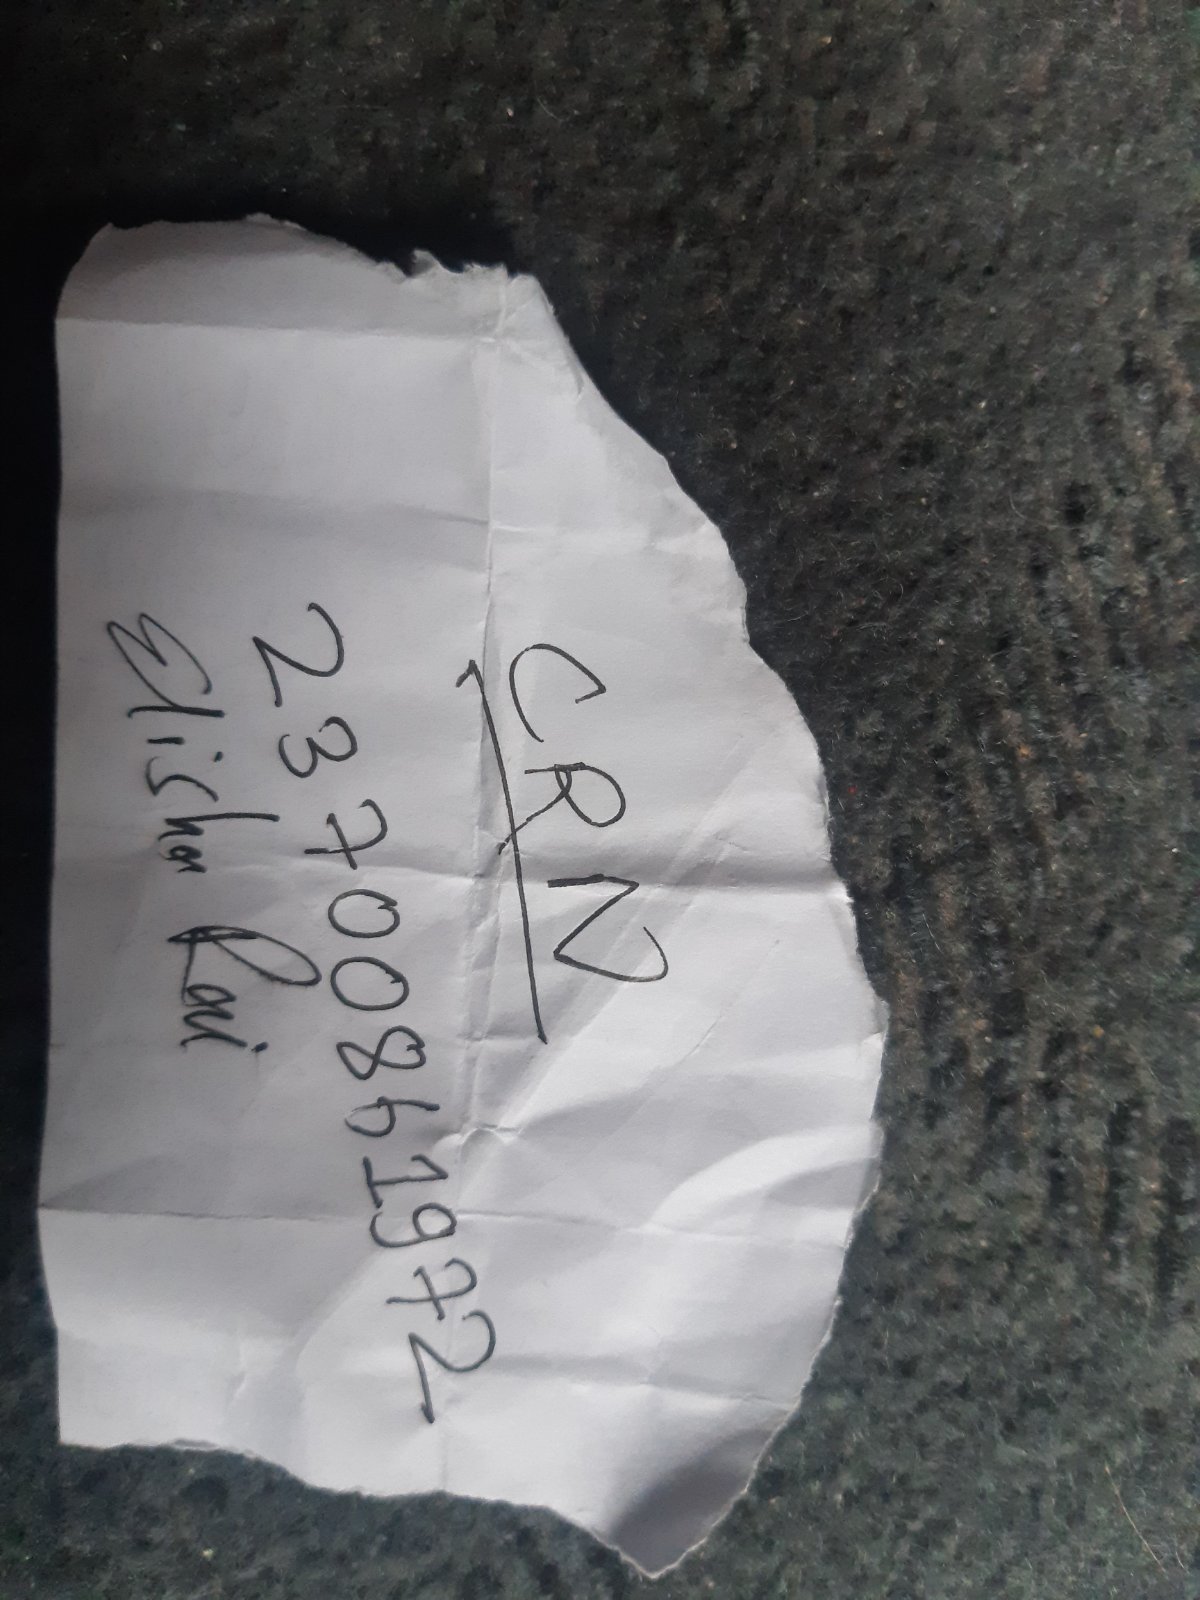 CRN
23700861972
Elisha Rai